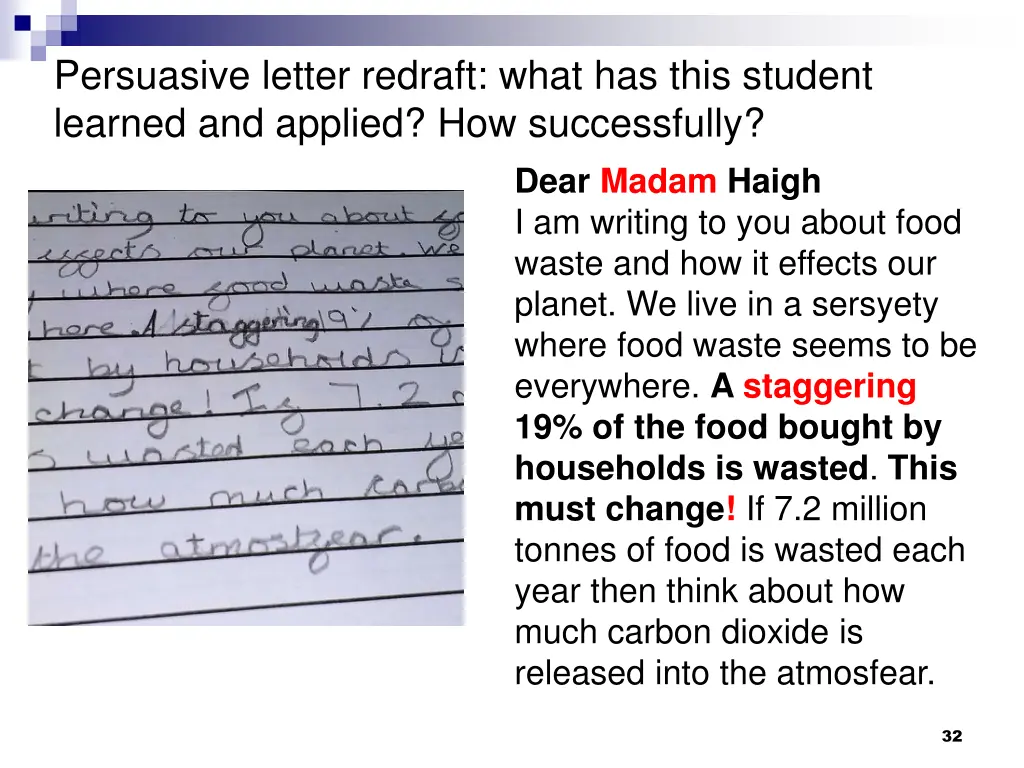 Persuasive letter redraft: what has this student
learned and applied? How successfully?
writing to you about
effects our planet. We
where food waste s
here. A staggering 19%
by households
change! If 7.2
wasted each ye
how much carb
the atmosfear.
Dear Madam Haigh
I am writing to you about food
waste and how it effects our
planet. We live in a sersyety
where food waste seems to be
everywhere. A staggering
19% of the food bought by
households is wasted. This
must change! If 7.2 million
tonnes of food is wasted each
year then think about how
much carbon dioxide is
released into the atmosfear.
32